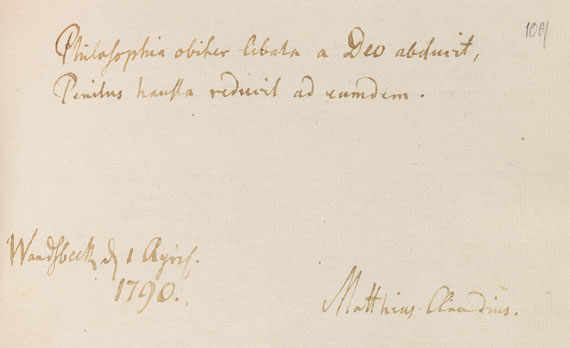 109
Philosophia obiter libata a Deo abducit,
Penitus hausta reducit ad eumdem.
Wandsbeck, d 1 April.
1790.
Matthias Claudius.